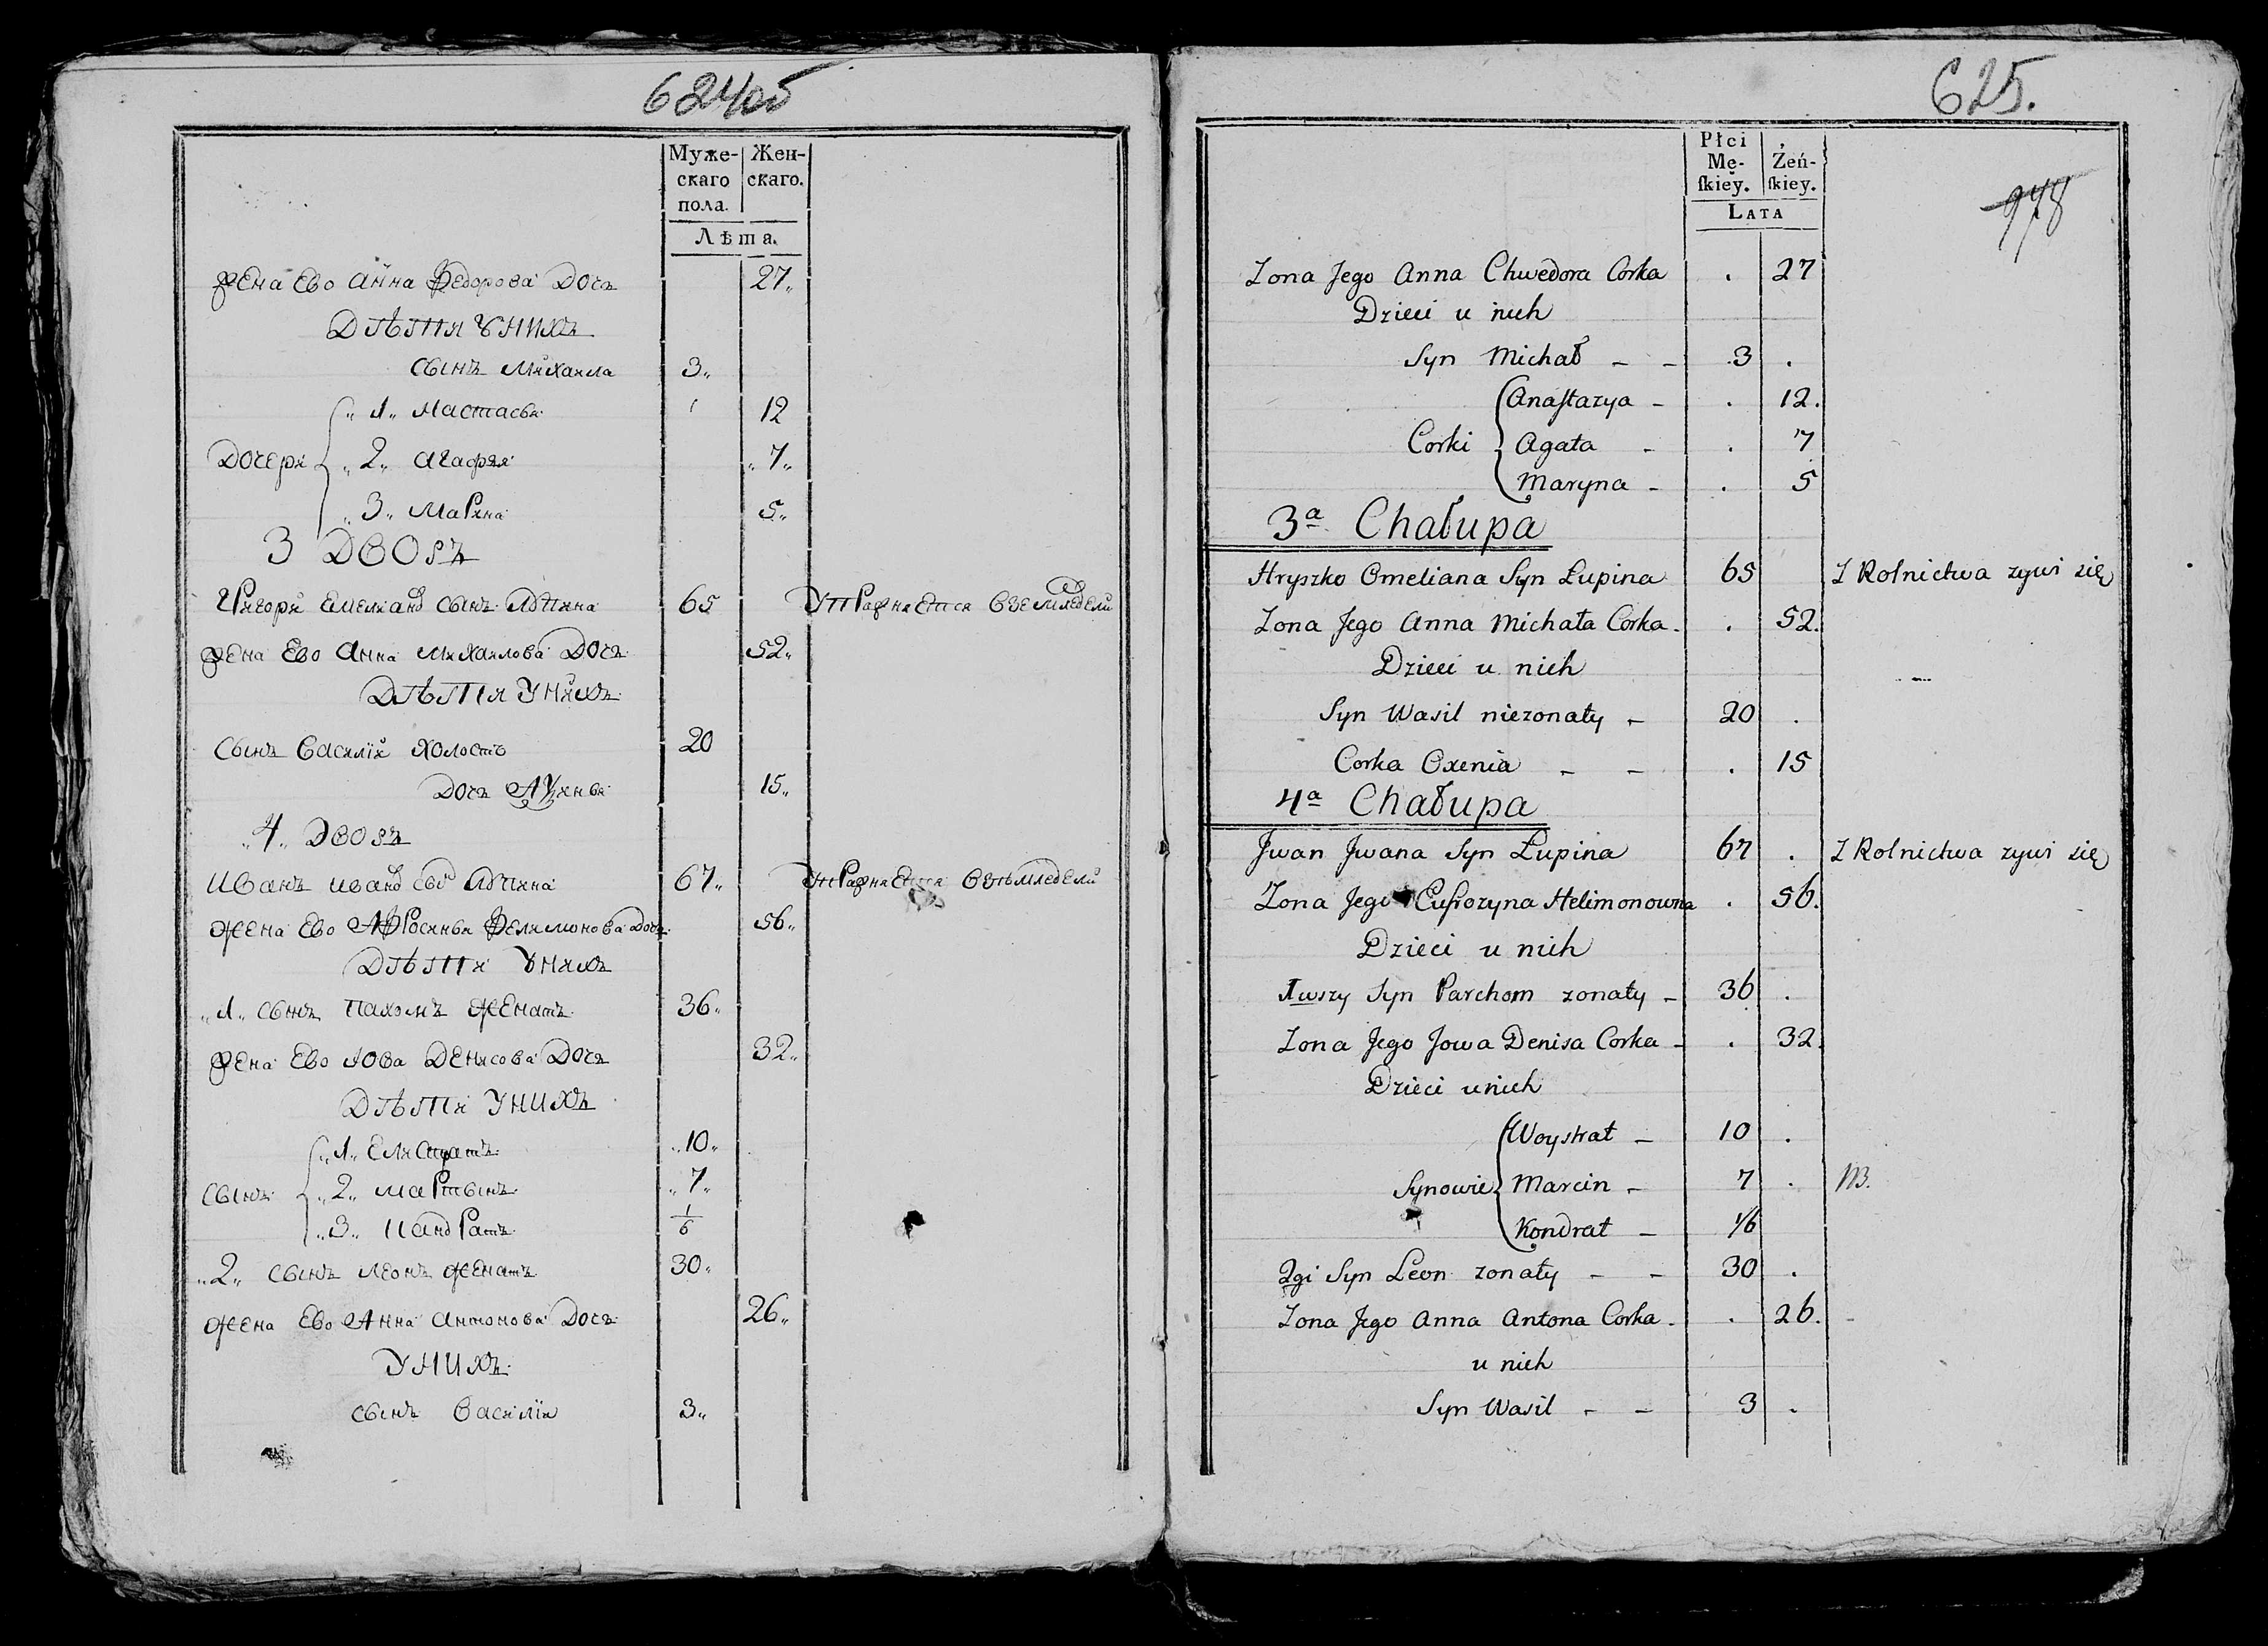 624об
Муже- Жен-
скаго скаго.
пола.
Лѣта.
жена Ево анна Федорова Дочь 27
Дѣти Унихъ
сынъ Михаила 3
1 Настасья 12
Дочери 2 агафья 7
3 Марина 5
3 Дворъ
Григори Емелиано сынъ Лупина 65 Упражнается вземледели
жена Ево Анна Михаилова Дочь 52
Дѣти Унихъ
сынъ Василіи Холостъ 20
Дочь 15
4 Дворъ
Иванъ ивано Лупина 67 Упражнается взѣмледели
жена Ево Афросинья Филимонова Дочь 56
Дѣти Унихъ
1 сынъ Пахомъ женатъ 36
жена Ево Іова Денисова Дочь 32
Дѣти Унихъ
1 Елистратъ 10
сынъ 2 Мартынъ 7
3 Кандратъ 1/6
2 сынъ Леонъ женатъ 30
жена Ево Анна антонова Дочь 26
Унихъ
сынъ Василіи 3
625.
Płci
Mę- Żeń-
ſkiey. ſkiey.
Lata
978
Zona Jego Anna Chwedora Corka . 27
Dzieci u nich
Syn Michał 3 .
Anaſtazya . 12.
Corki Agata . 7
Maryna . 5
3a Chałupa
Hryszko Omeliana Syn Łupina 65 Z Rolnictwa zywi się
Zona Jego Anna Michała Corka . 52.
Dzieci u nich
Syn Wasil niezonaty 20 .
Corka Oxenia . 15
4a Chałupa
Jwan Jwana Syn Łupina 67 . Z Rolnictwa zywi się
Zona Jego Eufrozyna Helimonowna . 56.
Dzieci u nich
1wszy Syn Parchom zonaty 36 .
Zona Jego Jowa Denisa Corka . 32.
Dzieci u nich
Woystrat 10 .
Synowie Marcin 7 .
Kondrat 1/6
2gi Syn Leon zonaty 30 .
Zona Jego Anna Antona Corka . 26.
u nich
Syn Wasil 3 .